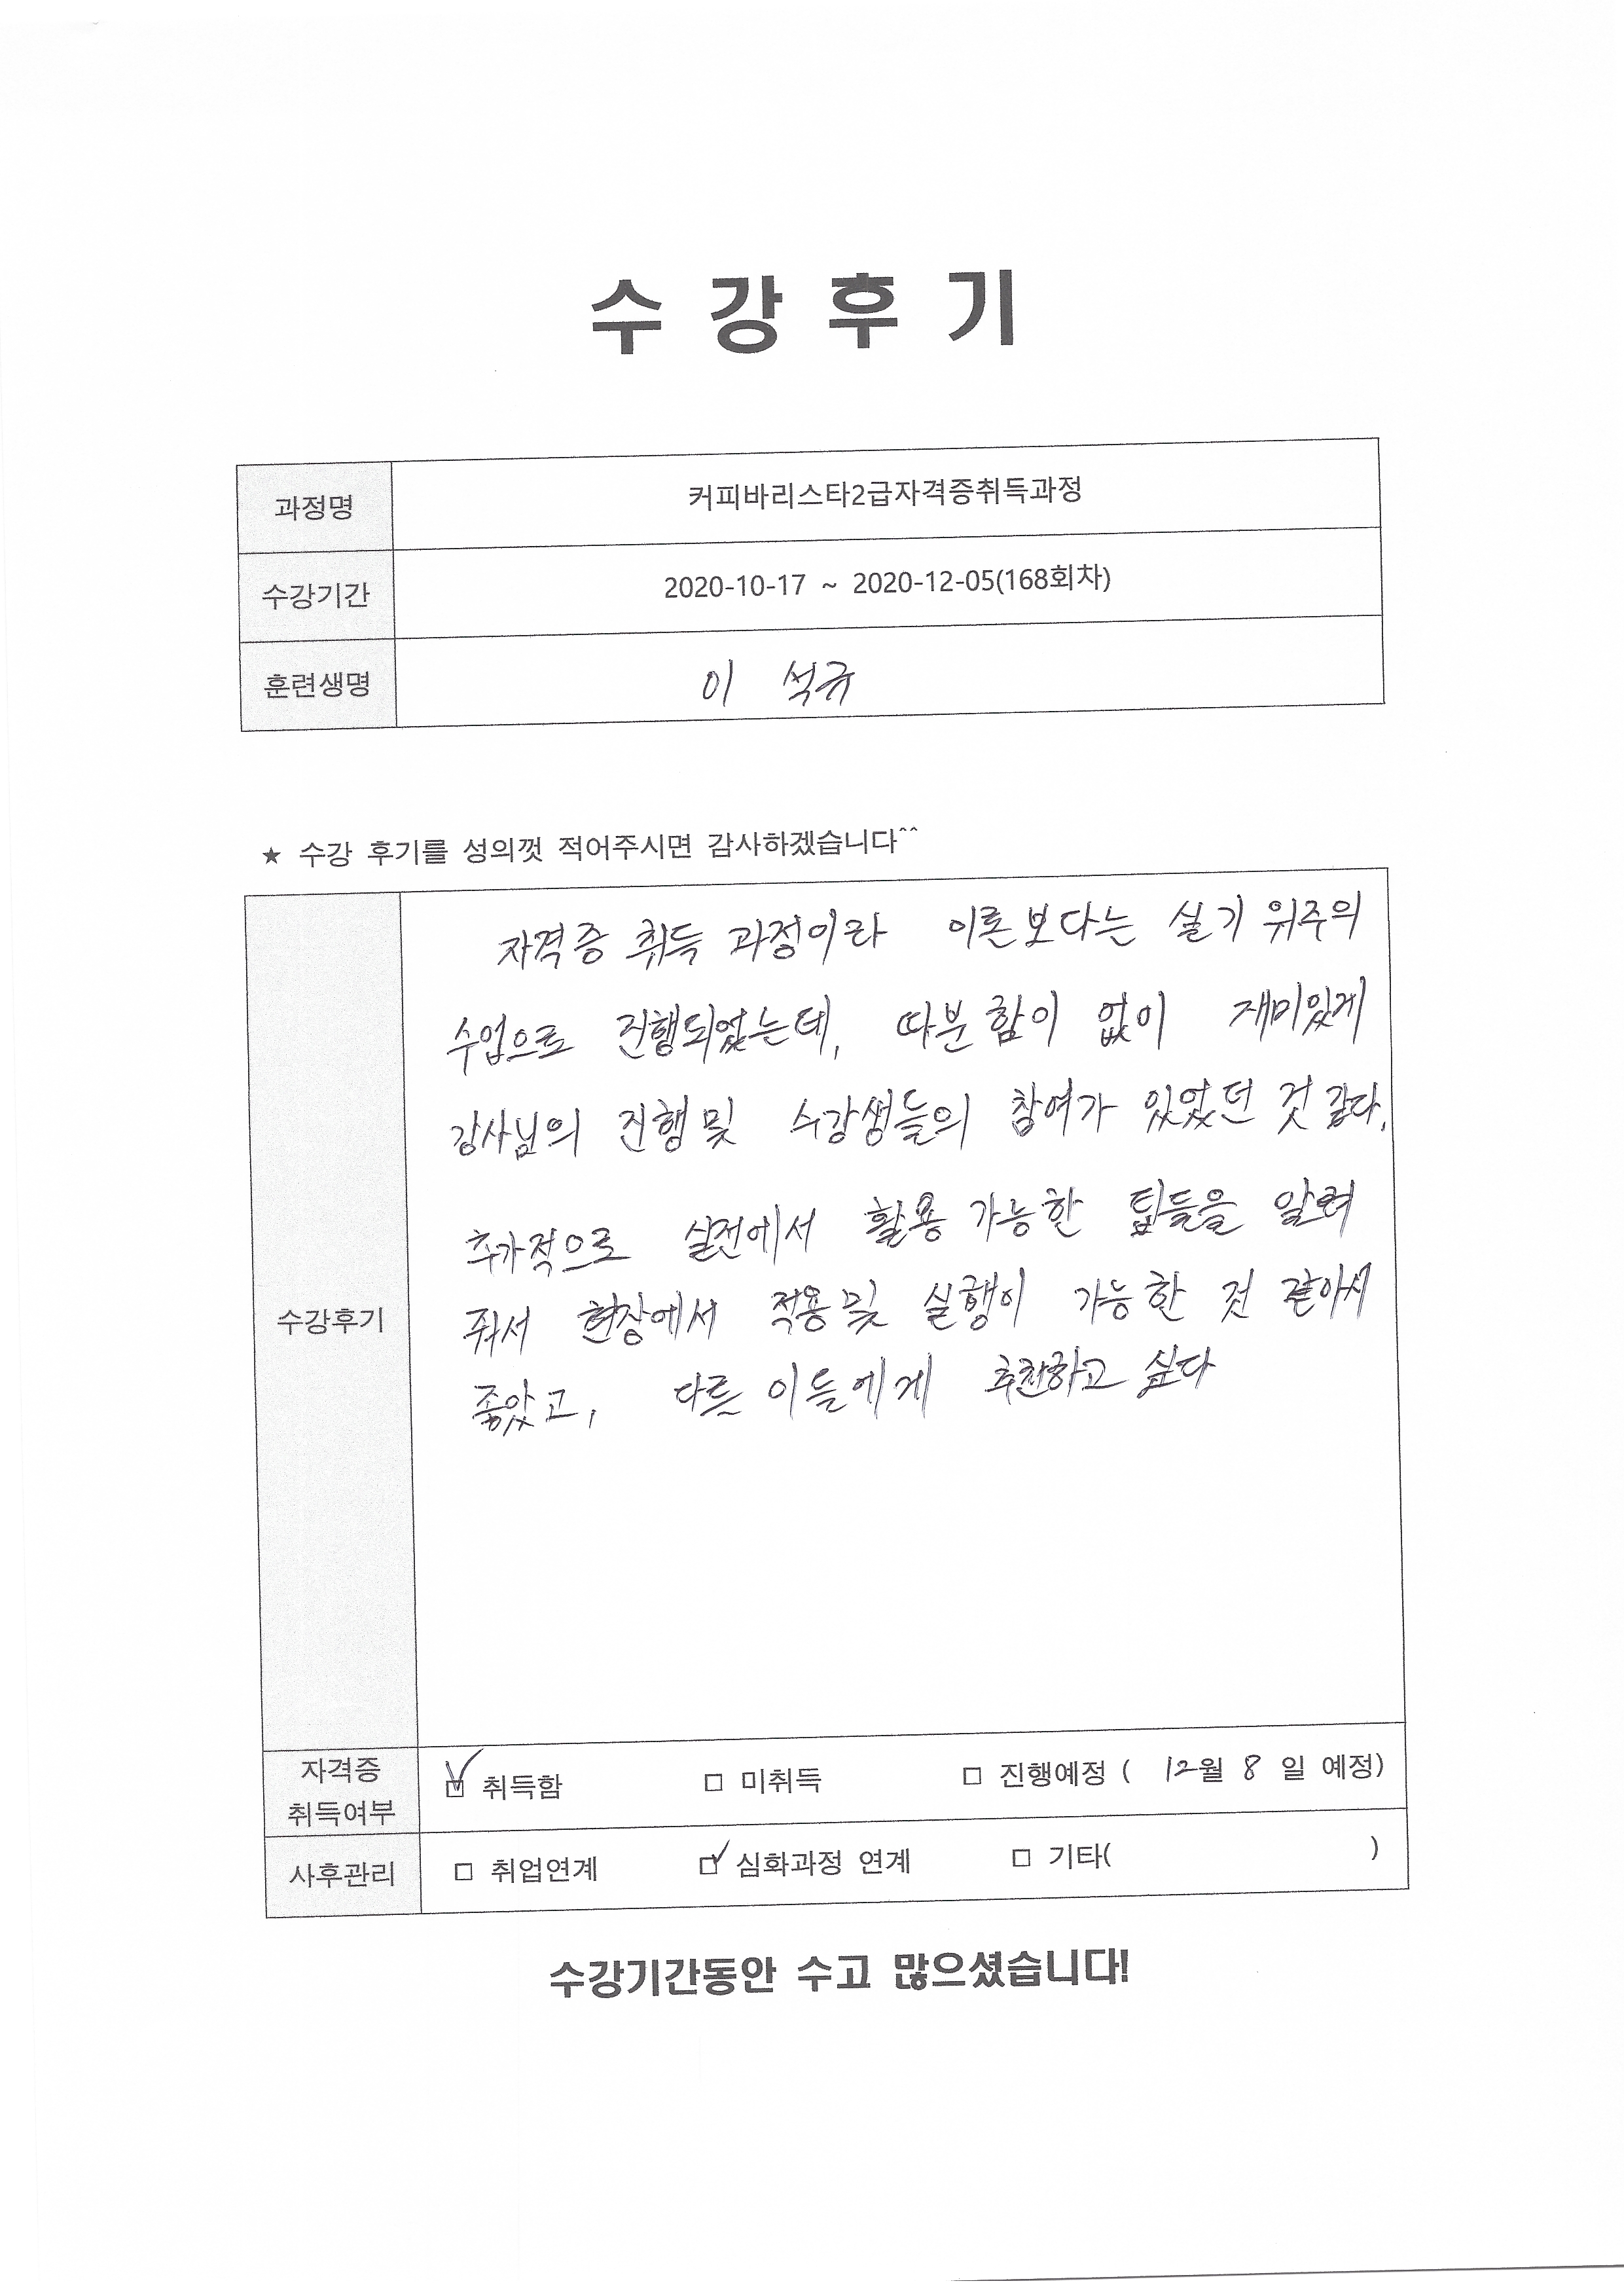 수 강 후 기
과정명 커피바리스타2급자격증취득과정
수강기간 2020-10-17 ~ 2020-12-05(168회차)
훈련생명 이 석규
★ 수강 후기를 성의껏 적어주시면 감사하겠습니다^^
자격증 취득 과정이라 이론보다는 실기 위주의
수업으로 진행되었는데, 따분함이 없이 재미있게
강사님의 진행및 수강생들의 참여가 있었던 것 같다.
추가적으로 실전에서 활용 가능한 팁들을 알려
수강후기
줘서 현장에서 적용및 실행이 가능한 것 같아서
좋았고, 다른 이들에게 추천하고 싶다
자격증
취득여부
☑ 취득함 □ 미취득 □ 진행예정 ( 12월 8 일 예정)
사후관리 □ 취업연계 ☑ 심화과정 연계 □ 기타( )
수강기간동안 수고 많으셨습니다!